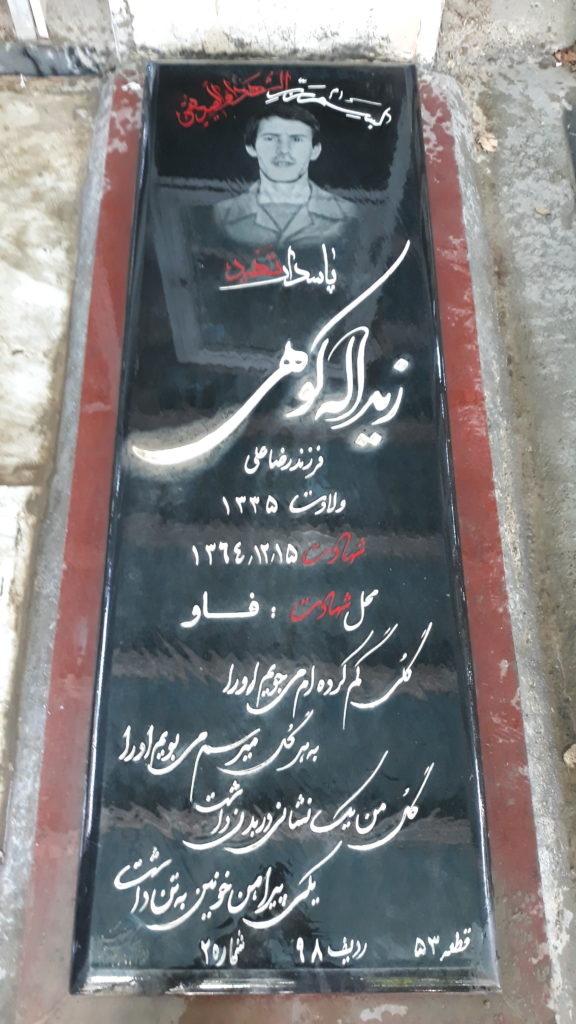 بسم رب الشهداء و الصدیقین
پاسدار شهید
زیداله کوهی
فرزند رضاعلی
ولادت ۱۳۳۵
شهادت ۱۳۶۴/۱۲/۱۵
محل شهادت : فاو
گلی گم کرده ام می جویم او را
به هر گل میرسم می بویم او را
گل من یک نشانی در بدن داشت
یکی پیراهن خونین به تن داشت
قطعه ۵۳ ردیف ۹۸ شماره ۲